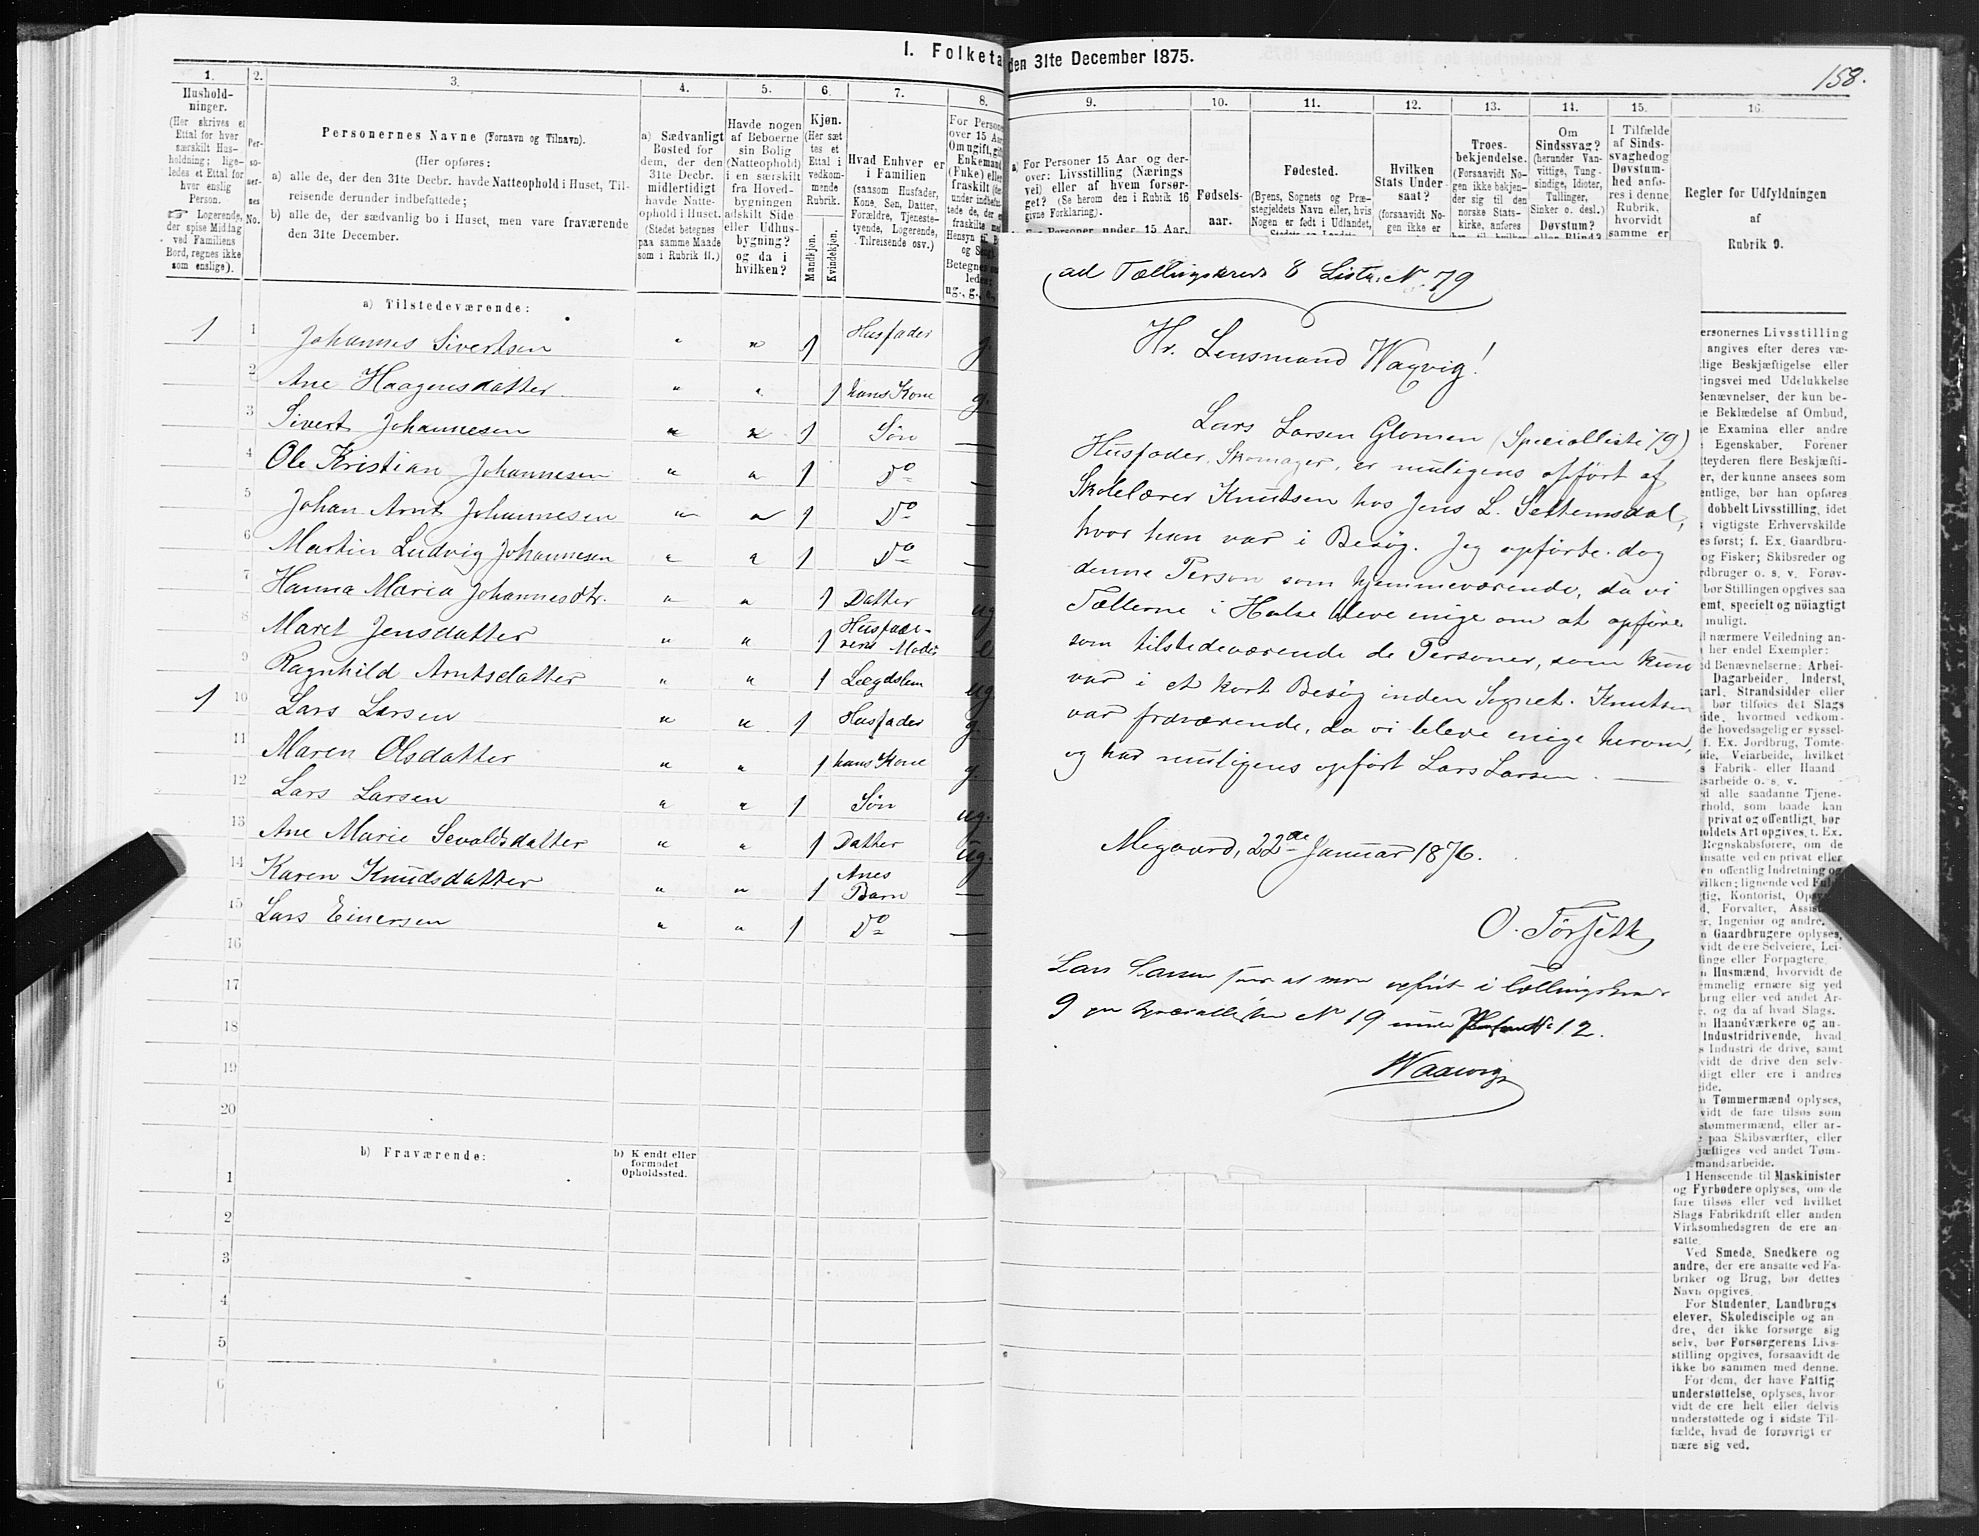 I. Folketa
den 31te December 1875.
158.
1.
Hushold-
ninger.
(Her skrives et
Ettal for hver
særskilt Hus-
holdning; lige-
ledes et Ettal for
hver enslig
Person.
☞ Logerende,
der spise Middag
ved Familiens
Bord, regnes ikke
som enslige).
2.
Per-
so-
ner-
nes
No.
3.
Personernes Navne (Fornavn og Tilnavn).
(Her opføres:
a) alle de, der den 31te Decbr. havde Natteophold i Huset, Til-
reisende derunder indbefattede;
b) alle de, der sædvanlig bo i Huset, men vare fraværende
den 31te December.
4.
a) Sædvanligt
Bosted for
dem, der den
31te Decbr.
midlertidigt
havde Natte-
ophold i Huset.
(Stedet betegnes
paa samme Maade
som i Rubrik 11.)
5.
Havde nogen
af Beboerne
sin Bolig
(Natteophold)
i en særskilt
fra Hoved-
bygningen
adskilt Side
eller Udhus-
bygning?
og da i
hvilken?
6.
Kjøn.
(Her sæt
tes et
Ettal i
vedkom-
mende
Rubrik.
Mandkjøn.
Kvindekjøn.
7.
Hvad Enhver er
i Familien
(saasom Husfader,
Kone, Søn, Datter,
Forældre, Tjeneste-
tyende, Logerende,
Tilreisende osv.)
8.
For Persone
over 15 Aar
Om ugift, gift
Enkemand
(Enke) eller
fraskilt (de
under indbefat-
tede de, der e
fraskilte med
Hensyn til B
og Seng).
Betegnes saa
ledes:
ug., g., e.,
9.
a) For Personer 15 Aar og der-
over: Livsstilling (Nærings
vei) eller af hvem forsør-
get? (Se herom den i Rubrik 16
givne Forklaring).
Personer under 15 Aar,
10.
Fødsels-
aar.
11.
Fødested.
(Byens, Sognets og Præ-
stegjeldets Navn eller, hvis
Nogen er født i Udlandet,
Stedets og Landets
12.
Hvilken
Stats Under
saat?
(forsaavidt No-
gen ikke er
13.
Troes-
bekjendelse.
(Forsaavidt No-
gen ikke bekjen-
der sig til den
norske Stats-
kirke, anføres
14.
Om
Sindssvag?
(herunder Van-
vittige, Tung-
sindige, Idioter,
Tullinger,
Sinker o. desl.)
Døvstum?
eller Blind?
15.
I Tilfælde
af Sinds-
svaghed og
Døvstum-
hed anfø-
res i denne
Rubrik,
hvorvidt
samme er
16.
Regler for Udfyldningen
af
Rubrik 9.
a) Tilstedeværende:
1 1 Johannes Sivertsen " " 1 Husfader g
2 Ane Haagensdatter " " 1 hans Kone g.
3 Sivert Johannesen " " 1 Søn —
4 Ole Kristian Johannesen " " 1 Do —
5 Johan Arnt Johannesen " " 1 Do —
6 Martin Ludvig Johannesen " " 1 Do —
7 Hanna Maria Johannesdtr. " " 1 Datter ug
8 Maret Jensdatter " " 1 Husfade-
rens Moder e
9 Ragnhild Arntsdatter " " 1 Lægdslem ug
1 10 Lars Larsen " " 1 Husfader g.
11 Maren Olsdatter " " 1 hans Kone g.
12 Lars Larsen " " 1 Søn ug.
13 Ane Marie Sevaldsdatter " " 1 Datter ug.
14 Karen Knudsdatter " " 1 Anes
Barn —
15 Lars Einersen " " 1 Do —
16
17
18
19
20
b) Fraværende:
b) Kjendt eller
formodet
Opholdssted.
1
2
3
4
5
6
ad Tællingskreds 8 Liste No 79
Hr. Lensmand Wagvig!
Lars Larsen Glomen (Specialliste 79)
Husfader, Skomager, er muligens opført af
Skolelærer Knutsen hos Jens L. Settemsdal,
hvor han var i Besøg. Jeg opførte dog
denne Person som hjemmeværende, da vi
Tællerne i Halse bleve enige om at opføre
som tilstedeværende de Personer, som kun
var i et kort Besøg inden Sognet. Knutsen
var fraværende, da vi bleve enige herom,
og har muligens opført Lars Larsen. —
Megaard, 22de Januar 1876.
O. Torjeth
Lars Larsen at opført i Tællingskreds
9 No 19 12.
Waawig
ersonernes Livsstilling
angives efter deres væ-
lige Beskjæftigelse eller
ringsvei med Udelukkelse
Benævnelser, der kun be-
e Beklædelse af Ombud,
e Examina eller andre
Egenskaber. Forener
tteyderen flere Beskjæfti-
er, der kunne ansees som
entlige, bør han opføres
dobbelt Livsstilling, idet
vigtigste Erhvervskilde
es først; f. Ex. Gaardbru-
og Fisker; Skibsreder og
rdbruger o. s. v. Forøv-
bør Stillingen opgives saa
emt, specielt og nöiagtigt
muligt.
nærmere Veiledning an-
her endel Exempler:
d Benævnelserne: Arbei-
Dagarbeider, Inderst,
karl, Strandsidder eller
bør tilføies det Slags
ide, hvormed vedkom-
de hovedsagelig er syssel-
f. Ex. Jordbrug, Tomte-
de, Veiarbeide, hvilket
s Fabrik- eller Haand-
sarbeide o. s. v.
d alle saadanne Tjene-
rhold, som baade kan
privat og offentligt, bør
holdets Art opgives, t. Ex.
Regnskabsførere, om de
insatte ved en privat eller
en offentlig Indretning og
vilken; lignende ved Ful
tig, Kontorist, Op
d, Forvalter, Assis
r, Ingeniør og andre.
Gaardbrugere oplyses,
vidt de ere Selveiere, Lei-
linge eller Forpagtere.
Husmænd, hvorvidt de
emmelig ernære sig ved
brug eller ved andet Ar-
, og da af hvad Slags.
Haandværkere og an-
Industridrivende, hvad
s Industri de drive, samt
vidt de drive den selv-
digt eller ere i andres
ide.
Tømmermænd oplyses,
vidt de fare tilsøs som
stømmermænd, eller ar-
paa Skibsværfter, eller
jæftiges ved andet Tøm-
mandsarbeide.
I Henseende til Maskinister
og Fyrbødere oplyses, om de
fare tilsøs eller ved hvilket
Slags Fabrikdrift eller anden
Virksomhedsgren de ere an-
satte.
Ved Smede, Snedkere og
andre, der ere ansatte ved Fa-
briker og Brug, bør dettes
Navn opgives.
For Studenter, Landbrugs
elever, Skoledisciple og an
dre, der ikke forsørge sig
selv, bør Forsørgerens Livs-
stilling opgives, forsaavidt de
ikke bo sammen med denne.
For dem, der have Fattig
understøttelse, oplyses, hvor-
vidt de ere helt eller delvis
understøttede og i sidste Til-
fælde, hvad de forøvrigt er
nære sig ved.